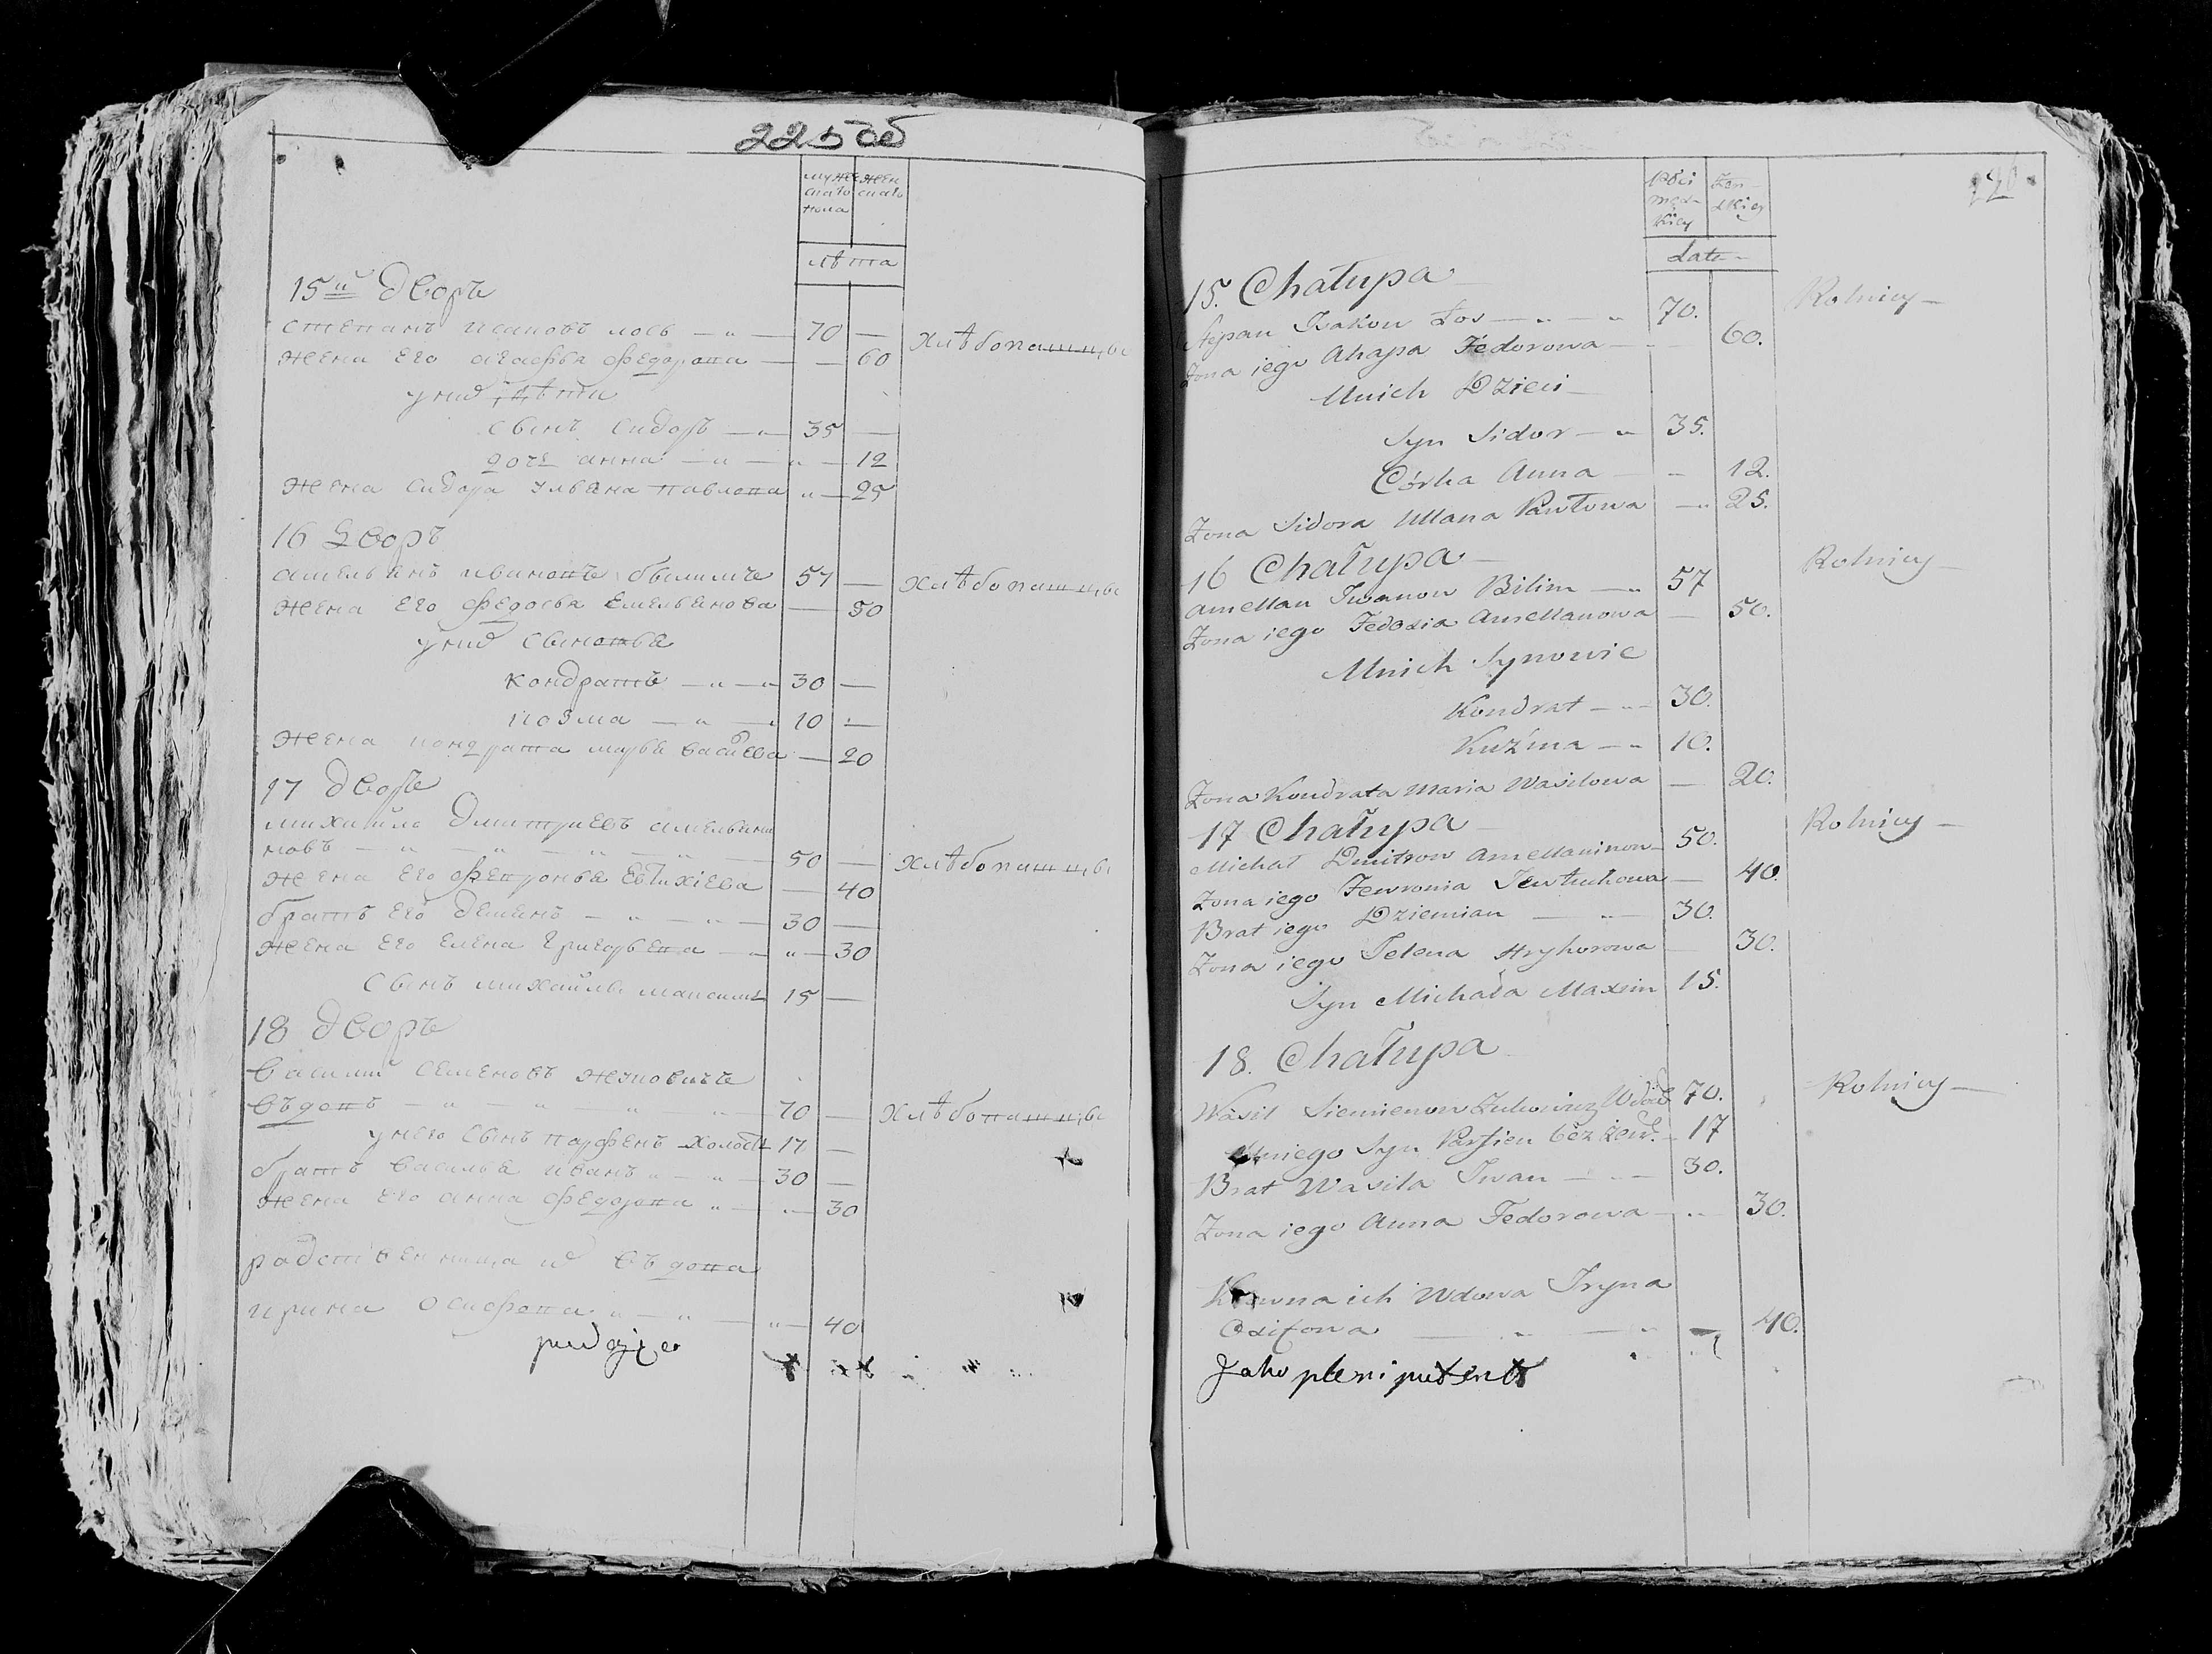 225 об
мужескаго пола
женскаго
лѣта
15й дворъ
степанъ исаковъ лось — „ — 70 —
жена его агафья федорова — — 60
хлѣбопашцы
у них дѣти
сынъ сидоръ — „ — 35 —
дочь анна — „ — „ — 12
жена сидора ульяна павлова „ — 25
16 дворъ
амельянъ ивановъ былимъ 57 —
хлѣбопашцы
жена его федосья емельянова — 50
у них сыновья
кондратъ — „ — „ 30 —
козма — „ — 10 —
жена кондрата марья васильева — 20
17 дворъ
михайло дмитриевъ амельяни
новъ — „ — „ — „ — „ — 50 —
хлѣбопашцы
жена его февронья евтихiева — 40
братъ его деменъ — „ — „ — 30 —
жена его елена григорьева — „ „ — 30
сынъ михайлы максимъ 15 —
18 дворъ
василий семеновъ жуковичь
вдовъ — „ — „ — „ — „ — 70 —
хлѣбопашцы
у него сынъ парфенъ холостъ 17 —
братъ василья иванъ „ — „ — 30 —
жена его анна федорова „ — „ — 30
родственница их вдова
ирина осифова „ — „ — „ — 40
płci męzkiey
żenskiey
lata
226
15. Chałupa
Rolnicy —
Stepan Isakow Łos — „ — „ 70.
Żona iego Ahapa Fedorowa — — 60.
U nich Dzieci —
Syn Sidor — „ 35.
Córka Anna — — 12.
Żona Sidora Ullana Pawłowa — „ 25.
16 Chałupa —
Rolnicy —
Amellan Iwanow Bilim — „ 57
Żona iego Fedosia Amellanowa — 50.
U nich Synowie
Kondrat — „ — 30.
Kuźma — „ 10.
Żona Kondrata Maria Wasilowa — 20.
17 Chałupa —
Rolnicy —
Michał Dmitrow Amellaninow — 50.
Żona iego Fewronia Iewtuchowa — 40.
Brat iego Dziemian — „ — 30.
Żona iego Jelena Hryhorowa — 30.
Syn Michała Maxim 15.
18. Chałupa
Rolnicy —
Wasil Siemienow Żukowicz Wdow 70.
U niego Syn Parfien bez żen. — 17
Brat Wasila Iwan — „ — 30.
Żona iego Anna Fedorowa — „ 30.
Krewna ich Wdowa Iryna
Osifowa — „ — „ — 40.
Jako plenipotent